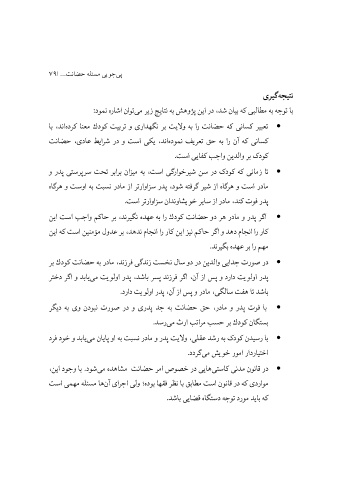 پی‌جویی مسئله حضانت... /۷۹
نتیجه‌گیری
با توجه به مطالبی که بیان شد، در این پژوهش به نتایج زیر می‌توان اشاره نمود:
• تعبیر کسانی که حضانت را به ولایت بر نگهداری و تربیت کودک معنا کرده‌اند، با
کسانی که آن را به حق تعریف نموده‌اند، یکی است و در شرایط عادی، حضانت
کودک بر والدین واجب کفایی است.
• تا زمانی که کودک در سن شیرخوارگی است، به میزان برابر تحت سرپرستی پدر و
مادر است و هرگاه از شیر گرفته شود، پدر سزاوارتر از مادر نسبت به اوست و هرگاه
پدر فوت کند، مادر از سایر خویشاوندان سزاوارتر است.
• اگر پدر و مادر هر دو حضانت کودک را به عهده نگیرند، بر حاکم واجب است این
کار را انجام دهد و اگر حاکم نیز این کار را انجام ندهد، بر عدول مؤمنین است که این
مهم را بر عهده بگیرند.
• در صورت جدایی والدین در دو سال نخست زندگی فرزند، مادر به حضانت کودک بر
پدر اولویت دارد و پس از آن، اگر فرزند پسر باشد، پدر اولویت می‌یابد و اگر دختر
باشد تا هفت سالگی، مادر و پس از آن، پدر اولویت دارد.
• با فوت پدر و مادر، حق حضانت به جد پدری و در صورت نبودن وی به دیگر
بستگان کودک بر حسب مراتب ارث می‌رسد.
• با رسیدن کودک به رشد عقلی، ولایت پدر و مادر نسبت به او پایان می‌یابد و خود فرد
اختیاردار امور خویش می‌گردد.
• در قانون مدنی کاستی‌هایی در خصوص امر حضانت مشاهده می‌شود. با وجود این،
مواردی که در قانون است مطابق با نظر فقها بوده؛ ولی اجرای آن‌ها مسئله مهمی است
که باید مورد توجه دستگاه قضایی باشد.